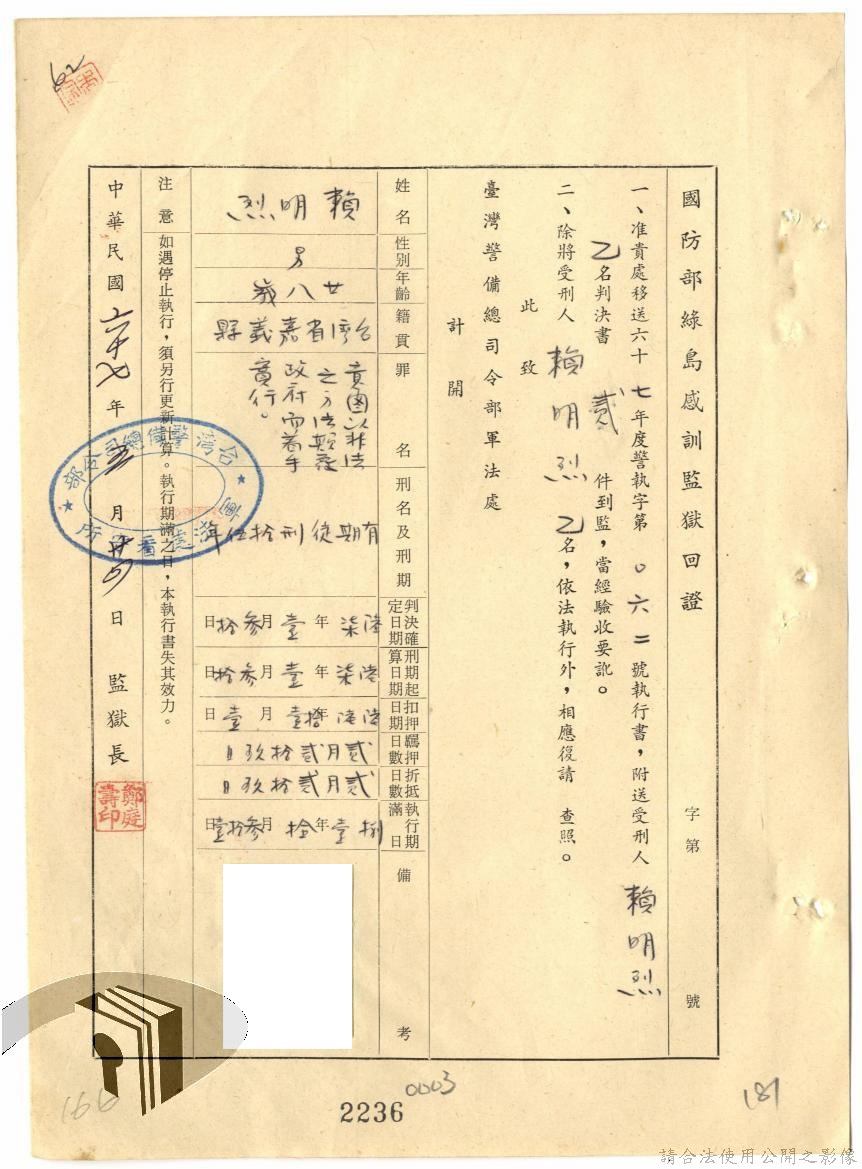 國防部綠島感訓監獄回證
字第　號
一、准貴處移送六十七年度警執字第〇六二號執行書，附送受刑人賴明烈
乙名判決書貳件到監，當經驗收要訖。
二、除將受刑人賴明烈乙名，依法執行外，相應復請　查照。
此致
臺灣警備總司令部軍法處
計開
姓名　賴明烈
性別　男
年齡　廿八歲
籍貫　台灣省嘉義縣
罪名　意圖以非法之方法顛覆政府而着手實行。
刑名及刑期　有期徒刑拾伍年
判決確定日期　陸柒年壹月參拾日
刑期起算日期　陸柒年壹月參拾日
扣押日期　陸陸年拾壹月壹日
羈押日數　貳月貳拾玖日
折抵日數　貳月貳拾玖日
執行期滿日　捌壹年拾月參拾壹日
備考
注意　如遇停止執行，須另行更新計算。執行期滿之日，本執行書失其效力。
中華民國六十七年五月廿四日　監獄長
鄭庭壽印
台灣警備總司令部
軍法處看守所
62
166
2236
0003
181
請合法使用公開之影像